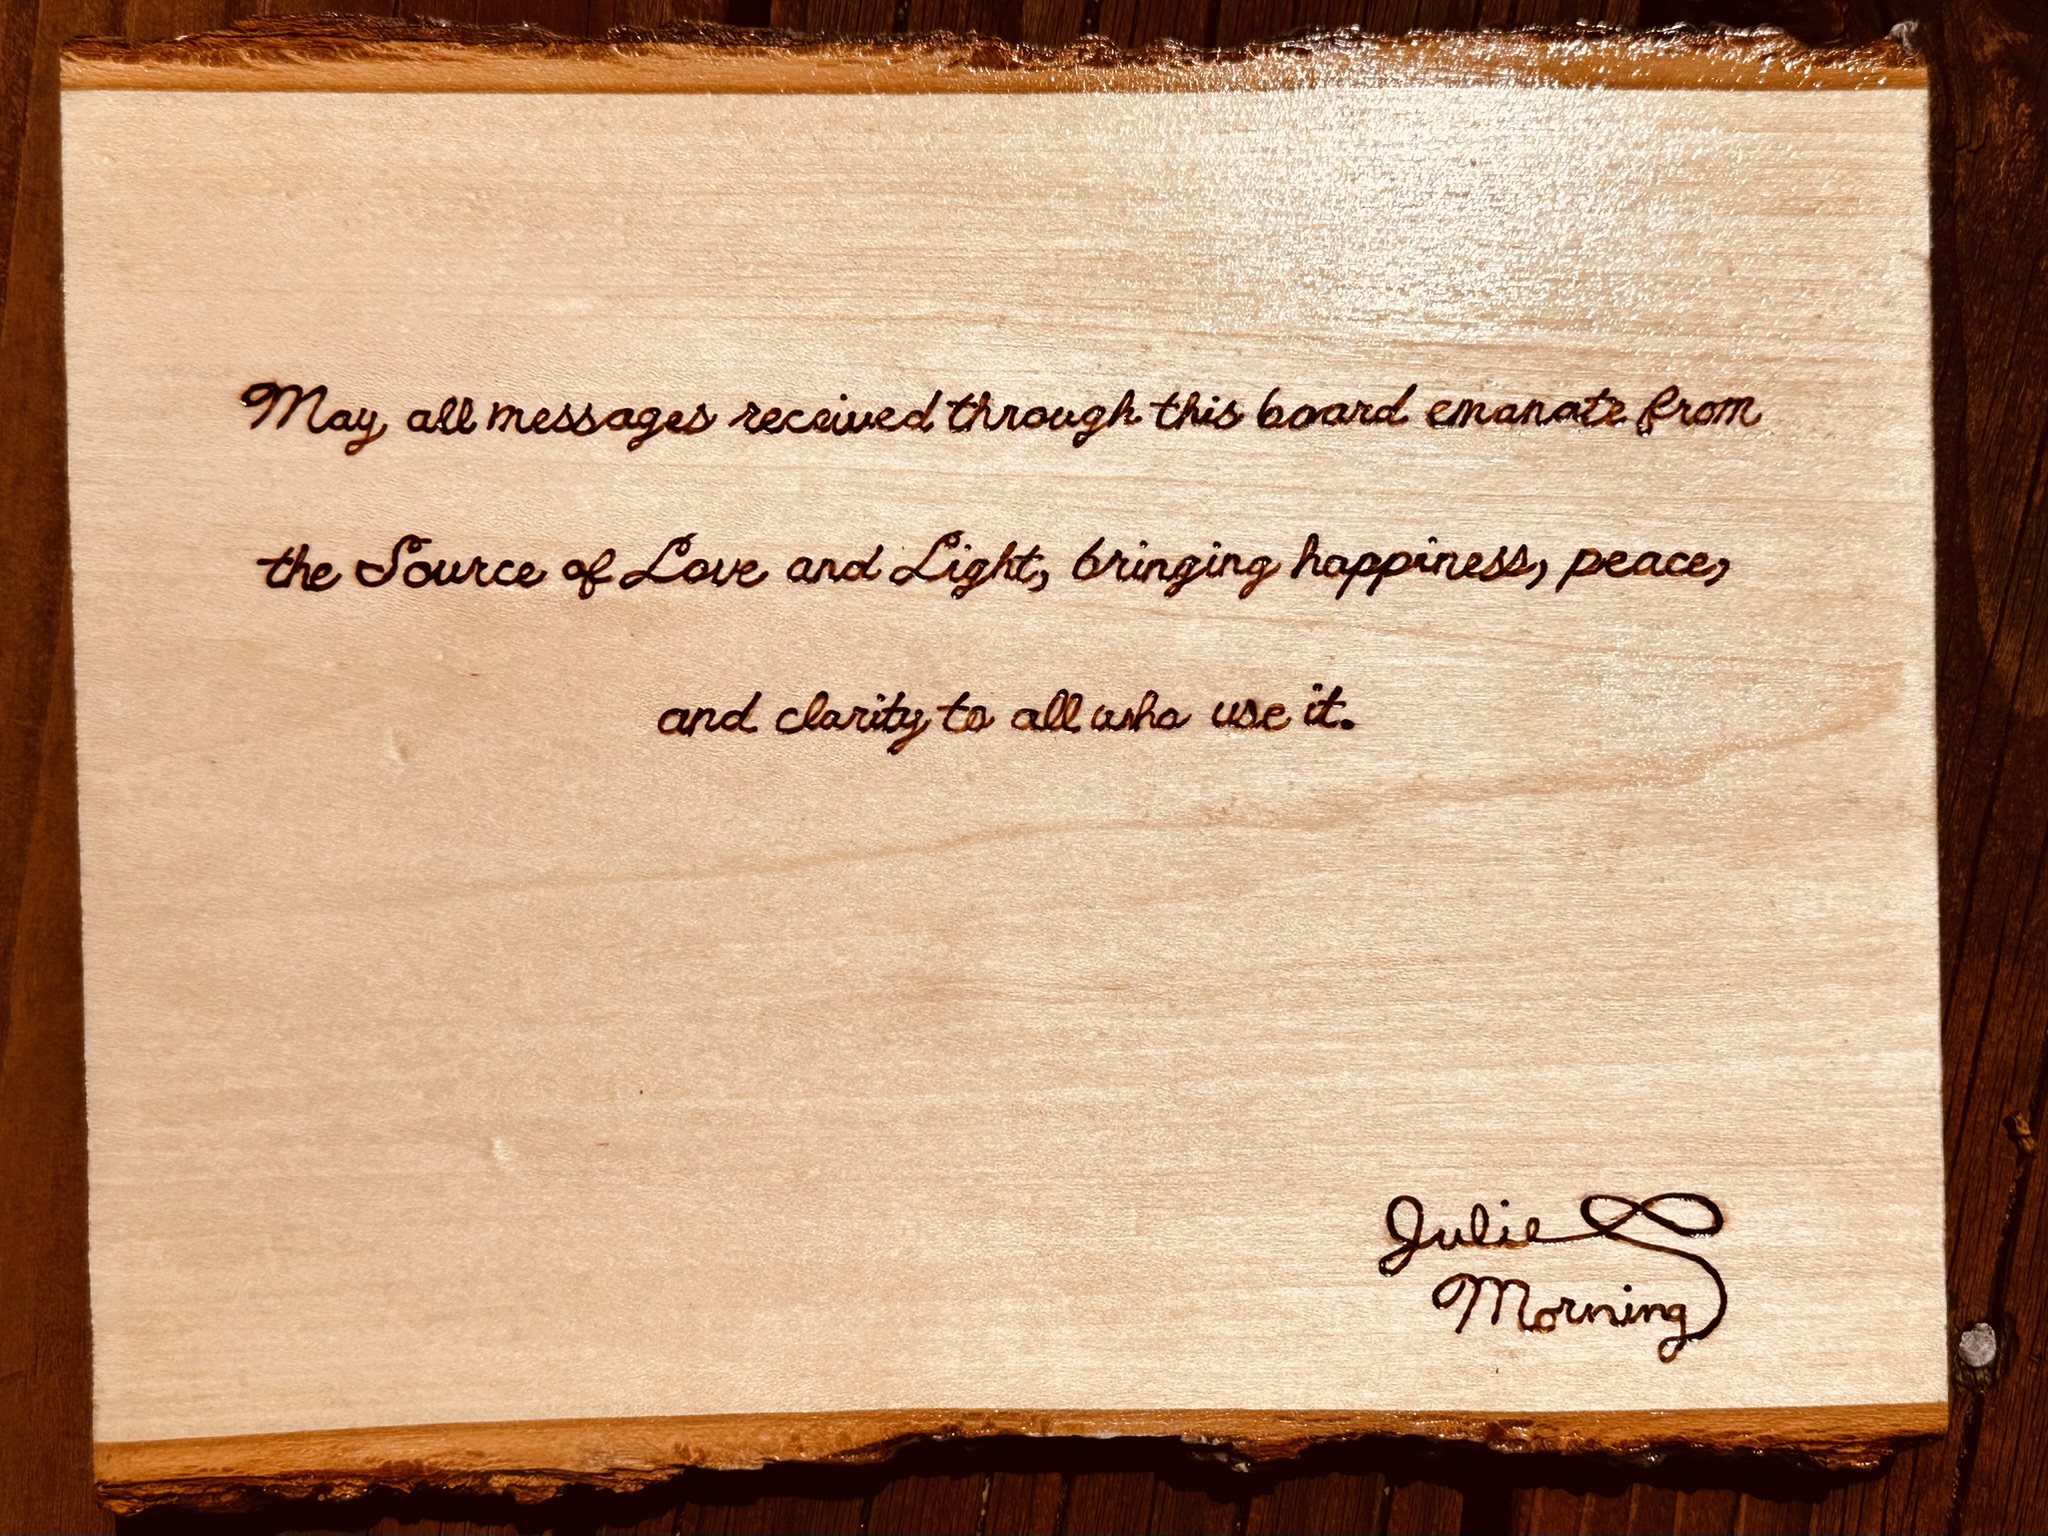 May all messages received through this board emanate from
the Source of Love and Light, bringing happiness, peace,
and clarity to all who use it.
Julie
Morning